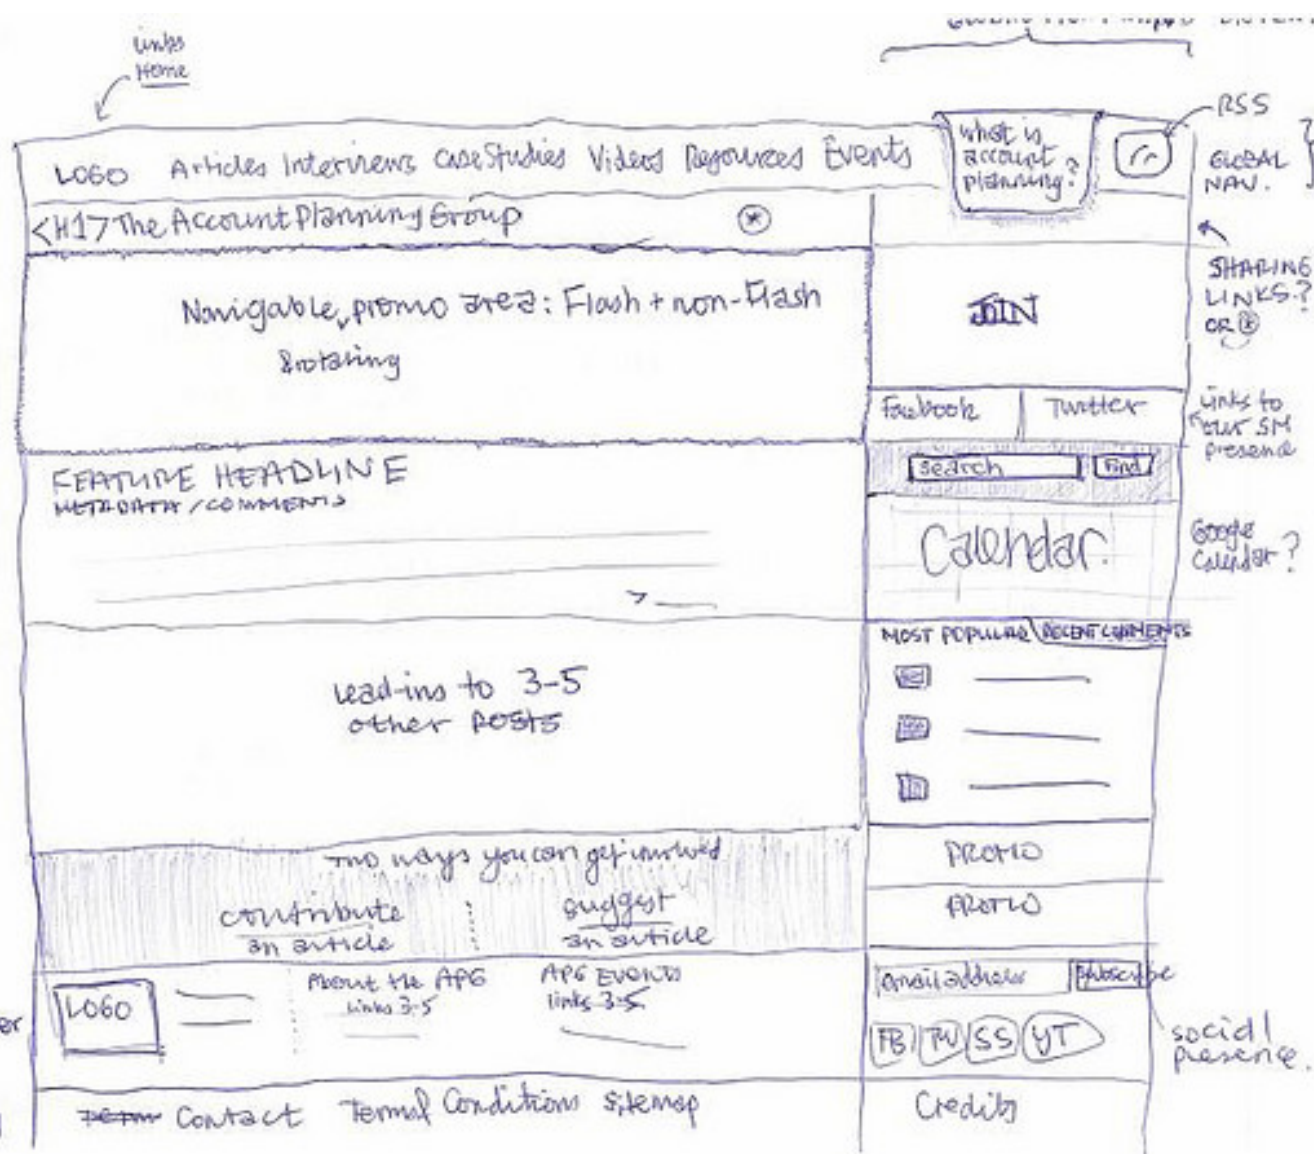 Links
Home
RSS
LOGO Articles Interviews Case Studies Videos Resources Events
What is
account
planning?
GLOBAL
NAV.
<H1> The Account Planning Group
SHARING
LINKS?
OR
Navigable, promo area: Flash + non-Flash
& rotating
JOIN
Facebook
Twitter
Links to
our SM
presence
Search
Find
FEATURE HEADLINE
METADATA / COMMENTS
Calendar.
Google
Calendar?
MOST POPULAR
RECENT COMMENTS
Lead-ins to 3-5
other posts
Two ways you can get involved
contribute
an article
suggest
an article
PROMO
PROMO
LOGO
About the APG
Links 3-5
APG EVENTS
links 3-5
email address
Subscribe
FB TW SS YT
social
presence.
Contact
Terms & Conditions
Sitemap
Credits